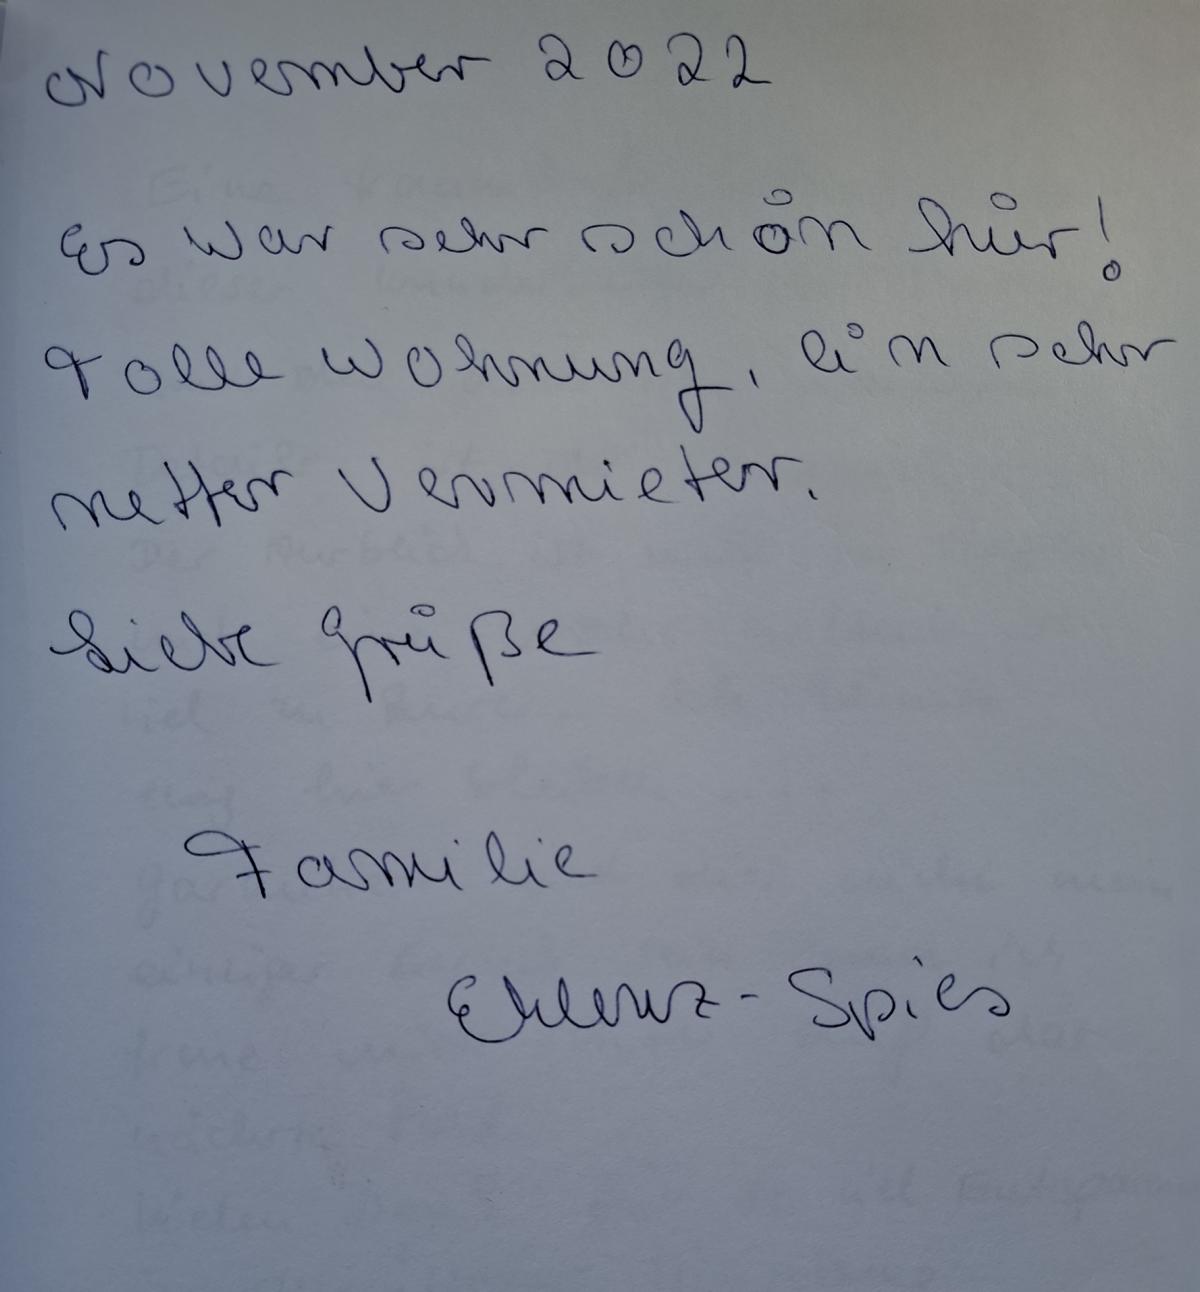 November 2022
Es war sehr schön hier!
Tolle Wohnung, ein sehr
netter Vermieter.
Liebe Grüße
Familie
Ehlenz-Spies